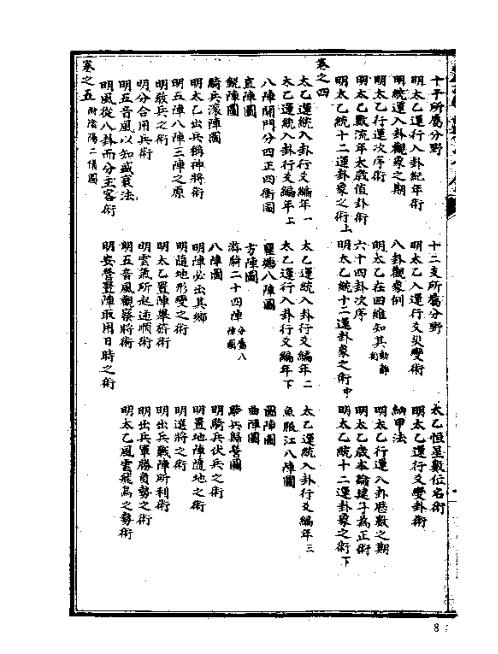 十干所屬分野　十二支所屬分野　太乙恒星數位名術
明太乙運行八卦紀年術　明太乙入運行爻災變術　明太乙運行爻變卦術
明統運入卦觀象之期　八卦觀象例　納甲法
明太乙行運次序術　明太乙在四維知其動靜術　明太乙行運入卦歷數之期
明太乙數流年太歲值卦術　六十四卦次序　明太乙歲本諸建子為正術
明太乙統十二運卦象之術上　明太乙統十二運卦象之術中　明太乙統十二運卦象之術下
卷之四
太乙運統入卦行爻編年一　太乙運統入卦行爻編年二　太乙運統入卦行爻編年三
太乙運統入卦行爻編年上　太乙運行入卦行爻編年下　魚腹江八陣圖
八陣開門分四正四衝圖　八陣圖
直陣圖　方陣圖　圓陣圖
銳陣圖　游騎二十四陣分屬八陣圖　曲陣圖
騎兵滾陣圖　八陣圖　騎兵歸營圖
明太乙出兵稱神將術　明陣必出其鄉　明騎兵伏兵之術
明五陣八陣三陣之原　明隨地形變之術　明置地陣隨地之術
明教兵之術　明太乙置陣舉旌術　明選將之術
明分合用兵術　明雲氣所起逆順術　明出兵戰陣所利術
明五音風以知盛衰法　明五音風觀察將術　明出兵軍勝負勢之術
明風從八卦而分主客術　明安營置陣取用日時之術　明太乙風雲飛鳥之勢術
卷之五附陰陽二儀圖